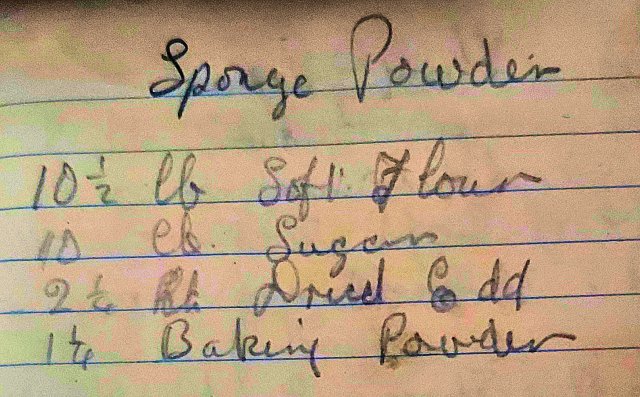 Sponge Powder
10 ½ lb Soft Flour
10 lb. Sugar
2 ¼ lb Dried Edd
1 ¼ Baking Powder